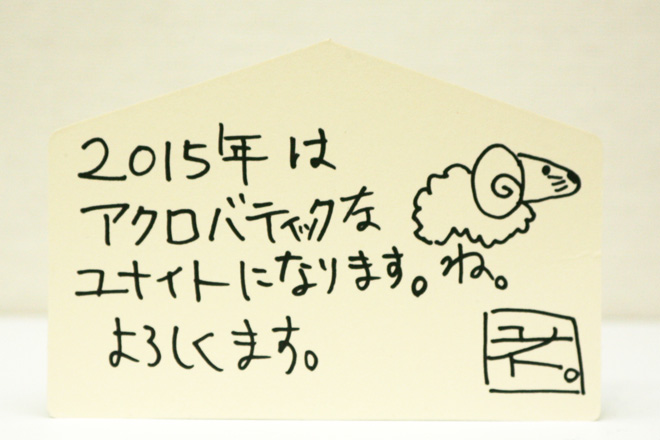 2015年は
アクロバティックな
ユナイトになります。ね。
よろしくます。